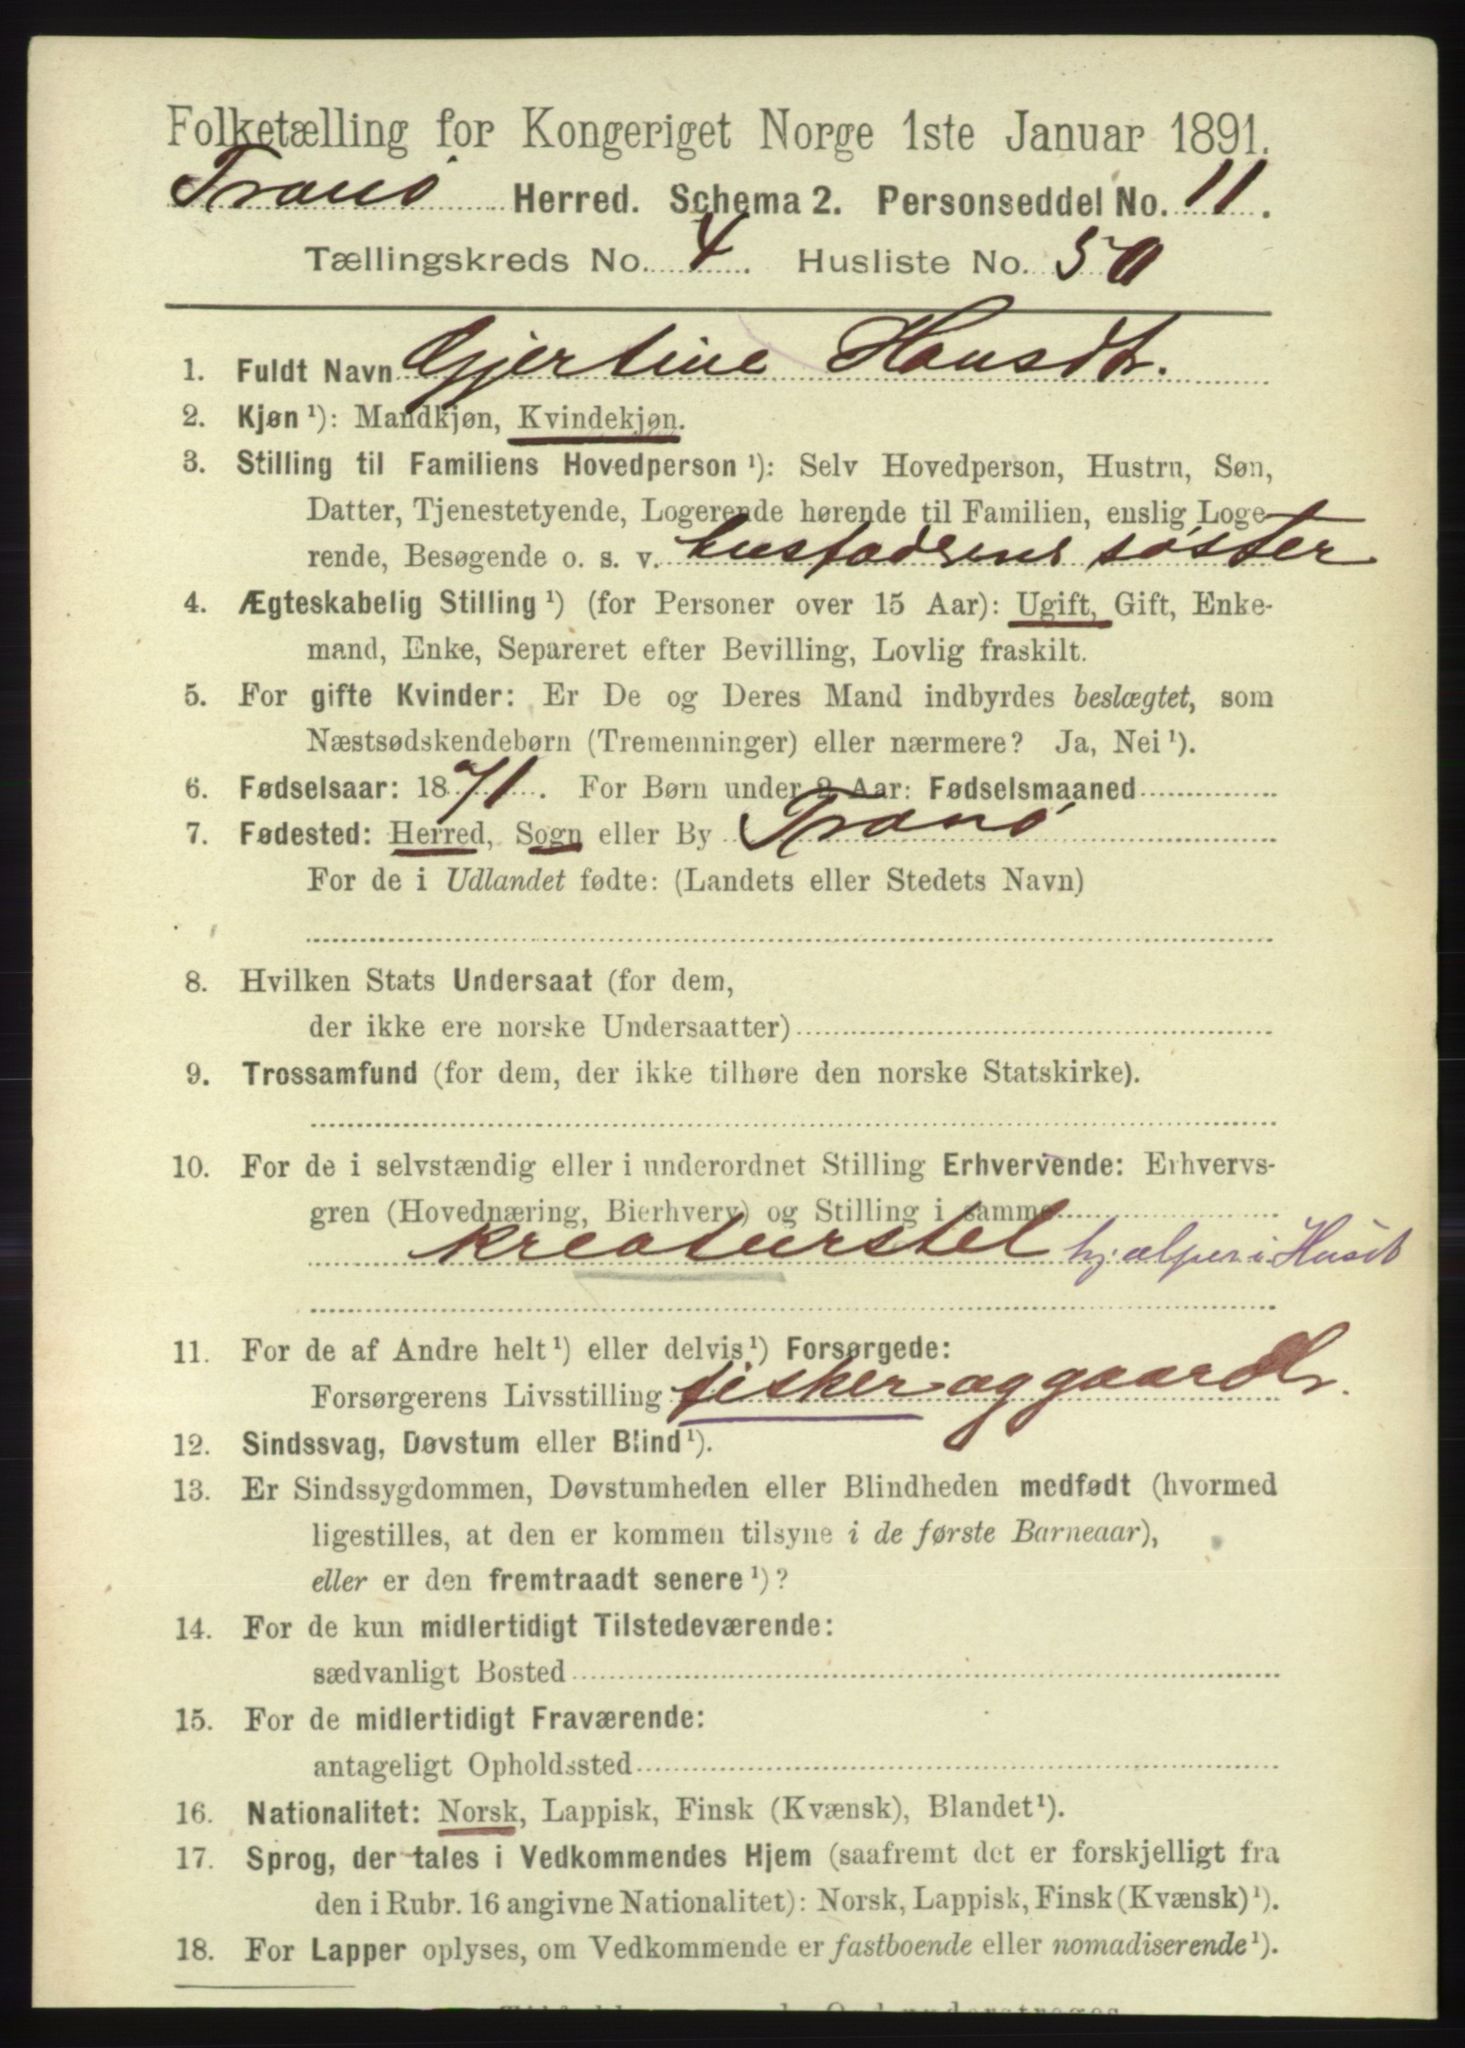 Folketælling for Kongeriget Norge 1ste Januar 1891.
Tranø Herred. Schema 2. Personseddel No. 11.
Tællingskreds No. 4. Husliste No. 50
1. Fuldt Navn Gjertine Hansdtr.
2. Kjøn ¹): Mandkjøn, Kvindekjøn.
3. Stilling til Familiens Hovedperson ¹): Selv Hovedperson, Hustru, Søn,
Datter, Tjenestetyende, Logerende hørende til Familien, enslig Loge-
rende, Besøgende o. s. v. husfaderens søster
4. Ægteskabelig Stilling ¹) (for Personer over 15 Aar): Ugift, Gift, Enke-
mand, Enke, Separeret efter Bevilling, Lovlig fraskilt.
5. For gifte Kvinder: Er De og Deres Mand indbyrdes beslægtet, som
Næstsødskendebørn (Tremenninger) eller nærmere? Ja, Nei ¹).
6. Fødselsaar: 1871. For Børn under 2 Aar: Fødselsmaaned
7. Fødested: Herred, Sogn eller By Tranø
For de i Udlandet fødte: (Landets eller Stedets Navn)
8. Hvilken Stats Undersaat (for dem,
der ikke ere norske Undersaatter)
9. Trossamfund (for dem, der ikke tilhøre den norske Statskirke).
10. For de i selvstændig eller i underordnet Stilling Erhvervende: Erhvervs-
gren (Hovednæring, Bierhverv) og Stilling i samme
kreaturstel hjælper i Husst
11. For de af Andre helt ¹) eller delvis ¹) Forsørgede:
Forsørgerens Livsstilling fisker og gaardbr.
12. Sindssvag, Døvstum eller Blind ¹).
13. Er Sindssygdommen, Døvstumheden eller Blindheden medfødt (hvormed
ligestilles, at den er kommen tilsyne i de første Barneaar),
eller er den fremtraadt senere ¹)?
14. For de kun midlertidigt Tilstedeværende:
sædvanligt Bosted
15. For de midlertidigt Fraværende:
antageligt Opholdssted
16. Nationalitet: Norsk, Lappisk, Finsk (Kvænsk), Blandet ¹).
17. Sprog, der tales i Vedkommendes Hjem (saafremt det er forskjelligt fra
den i Rubr. 16 angivne Nationalitet): Norsk, Lappisk, Finsk (Kvænsk) ¹).
18. For Lapper oplyses, om Vedkommende er fastboende eller nomadiserende ¹).